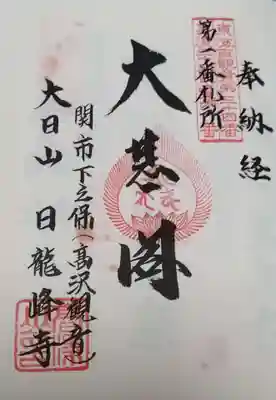 奉納経
第一番札所
大悲閣
関市下之保(髙沢観音)
大日山 日龍峰寺